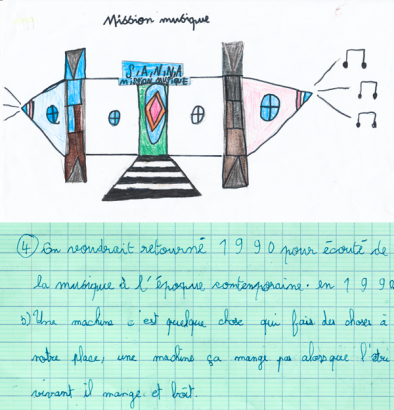 Mission musique
S.A.N.N.A
MISSION MUSIQUE
④ On voudrait retourné 1990 pour écouté de
la musique à l'époque contemporaine. en 1990
b) Une machine c'est quelque chose qui fais des choses à
notre place, une machine ça mange pas alors que l'être
vivant il mange et boit.